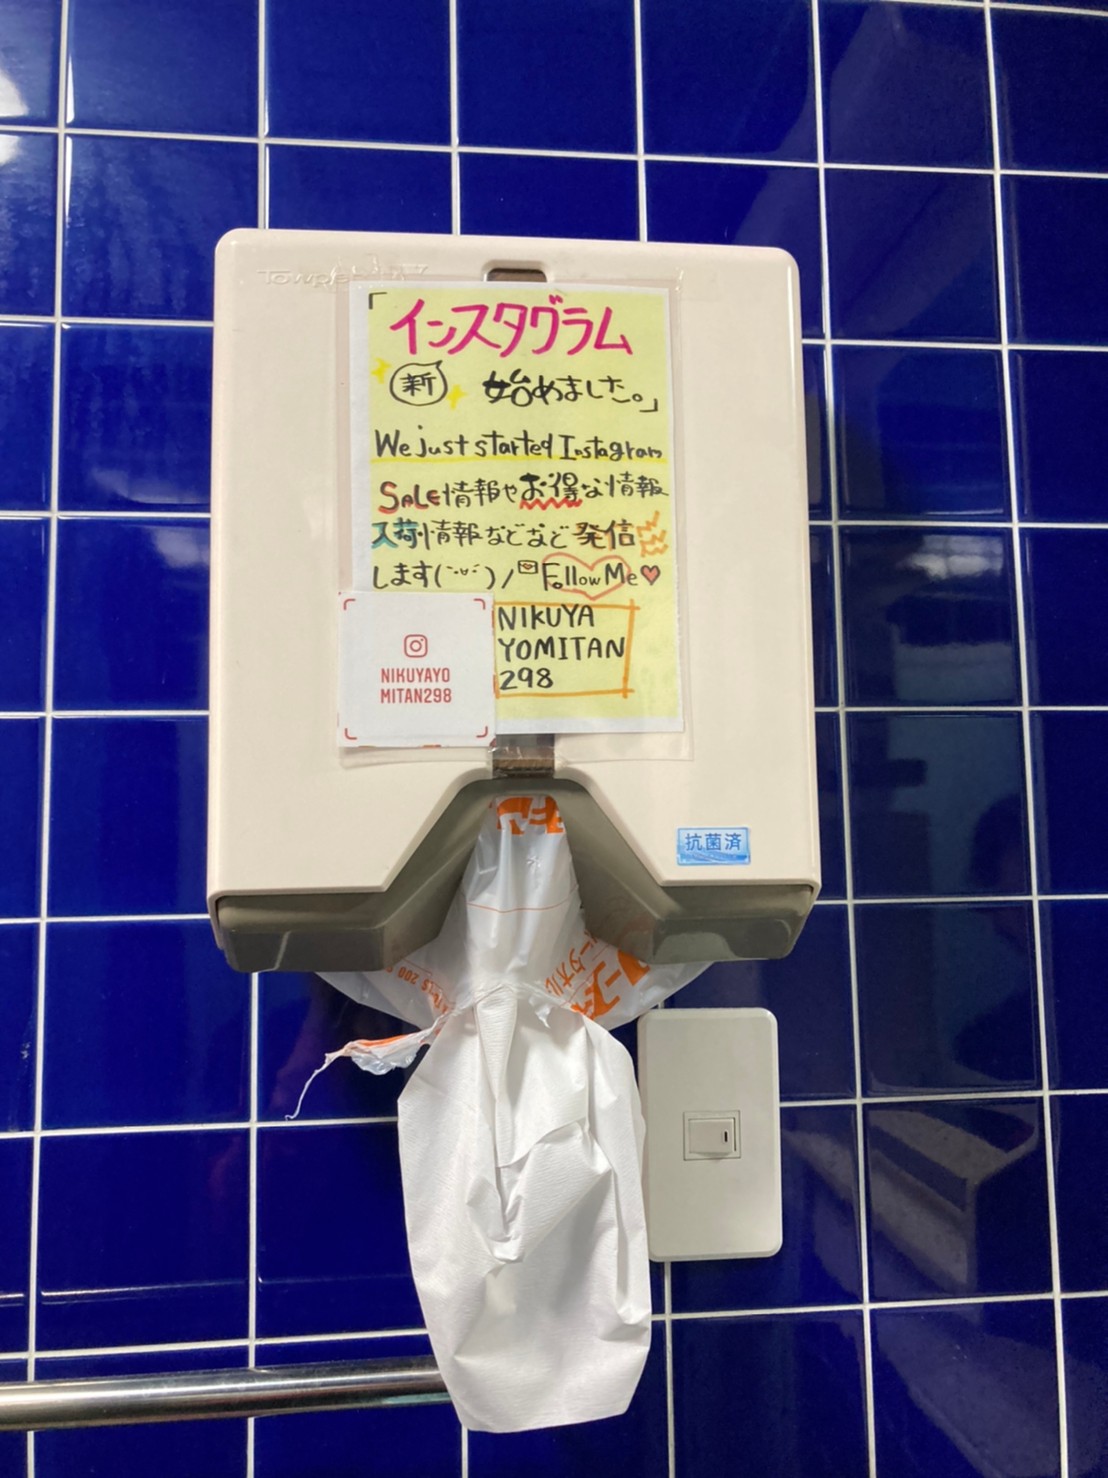 「インスタグラム
新 始めました。」
We just started Instagram
SALE情報やお得な情報
入荷情報などなど発信
します(˘ᵕ˘)/ Follow Me♥
NIKUYA
YOMITAN
298
NIKUYAYO
MITAN298
抗菌済